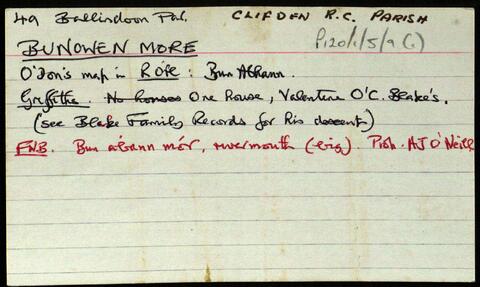 49 Ballindoon Par. CLIFDEN R.C. PARISH
P120/1/5/9 (1)
BUNOWEN MORE
O'Don's map in R Ófe: Bun Abhann.
Griffith. No houses One house, Valentine O'C. Blake's.
(see Blake Family Records for his descent)
FNB. Bun abann mór, rivermouth (big). Prob. AJ O'Neill